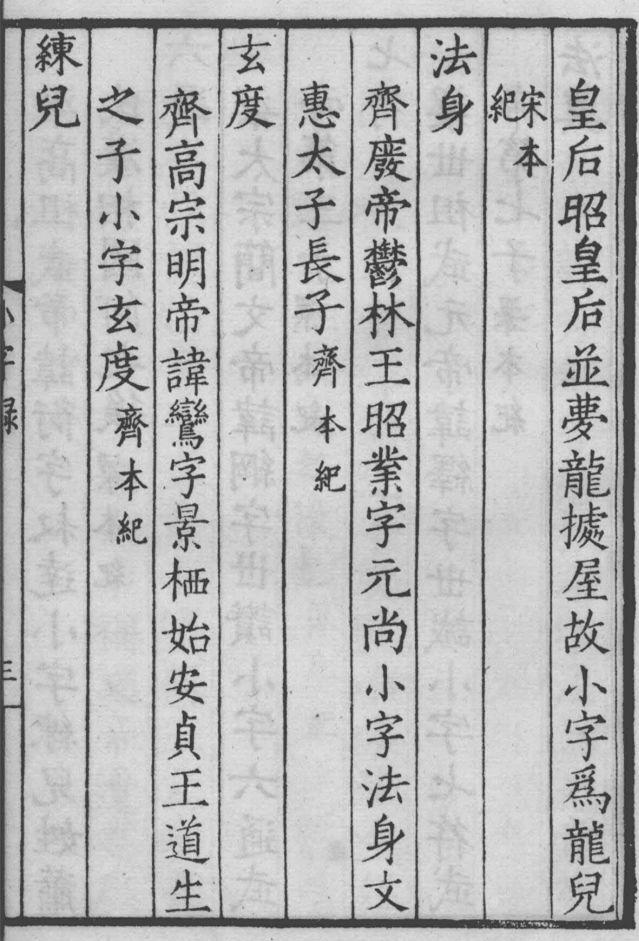 皇后昭皇后並夢龍據屋故小字爲龍兒
宋本
紀
法身
齊廢帝鬱林王昭業字元尚小字法身文
惠太子長子齊本紀
玄度
齊高宗明帝諱鸞字景栖始安貞王道生
之子小字玄度齊本紀
練兒
小字録
三